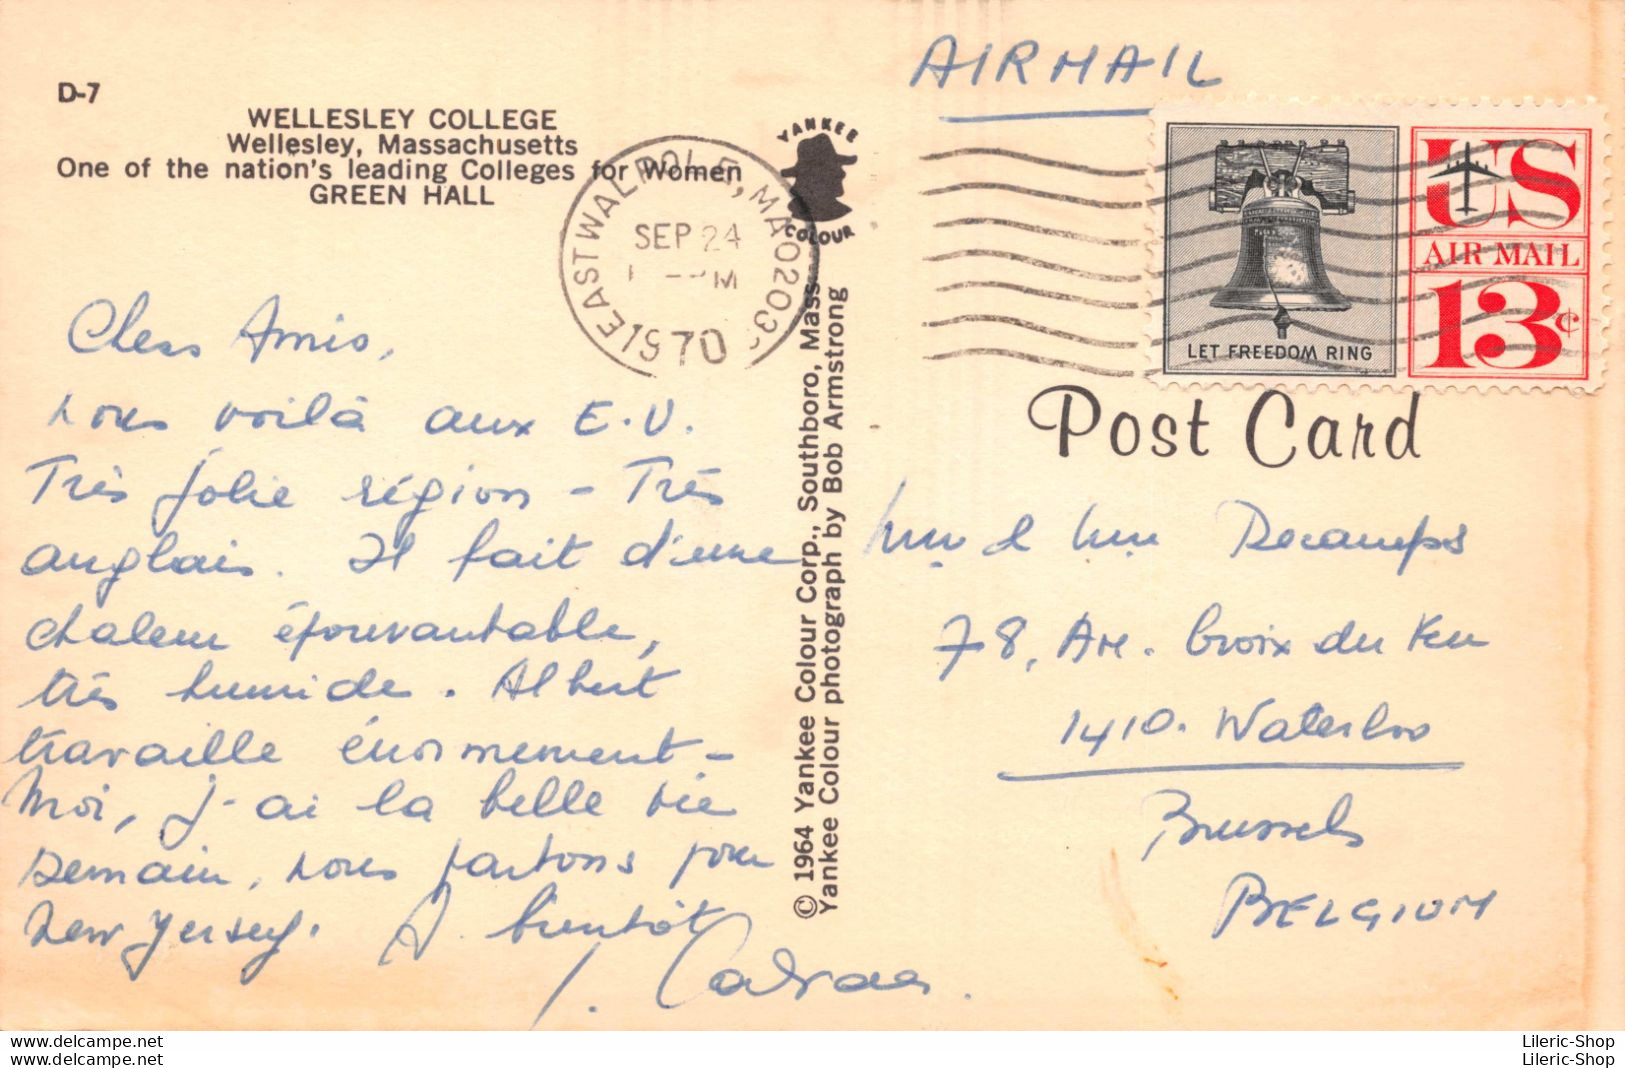 D-7
WELLESLEY COLLEGE
Wellesley, Massachusetts
One of the nation's leading Colleges for Women
GREEN HALL
EAST WALPOLE, MA 02032
SEP 24
PM
1970
YANKEE
COLOUR
AIRMAIL
US
AIR MAIL
13¢
LET FREEDOM RING
Post Card
Chers Amis,
Nous voilà aux E.U.
Très jolie région - Très
anglais. Il fait d'une
chaleur épouvantable,
très humide. Albert
travaille énormement -
Moi, j'ai la belle vie
Demain, nous partons pour
New Jersey. A bientôt
© 1964 Yankee Colour Corp., Southboro, Mass.
Yankee Colour photograph by Bob Armstrong
Decamps
78, Av. Croix du Feu
1410. Waterloo
Brussels
BELGIUM
Lileric-Shop
Lileric-Shop
delcampe.net
delcampe.net